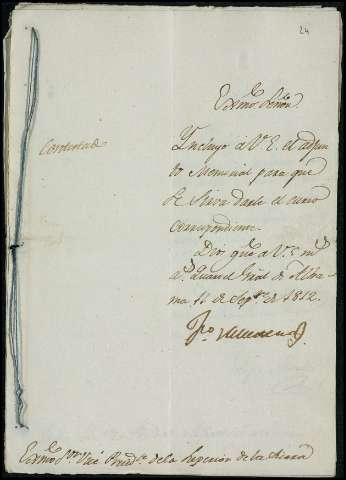 24
Exmo. Señor.
Contestada
Yncluyo á V.E. el adjun
to Memorial para que
se sirva darle el curso
correspondiente.
Dios gue. á V.E. ms.
as. Quartel Gral. de Alha
ma 11 de Sepre. de 1812.
Exmo. Sor. Vice Presidte. de la Superior de la